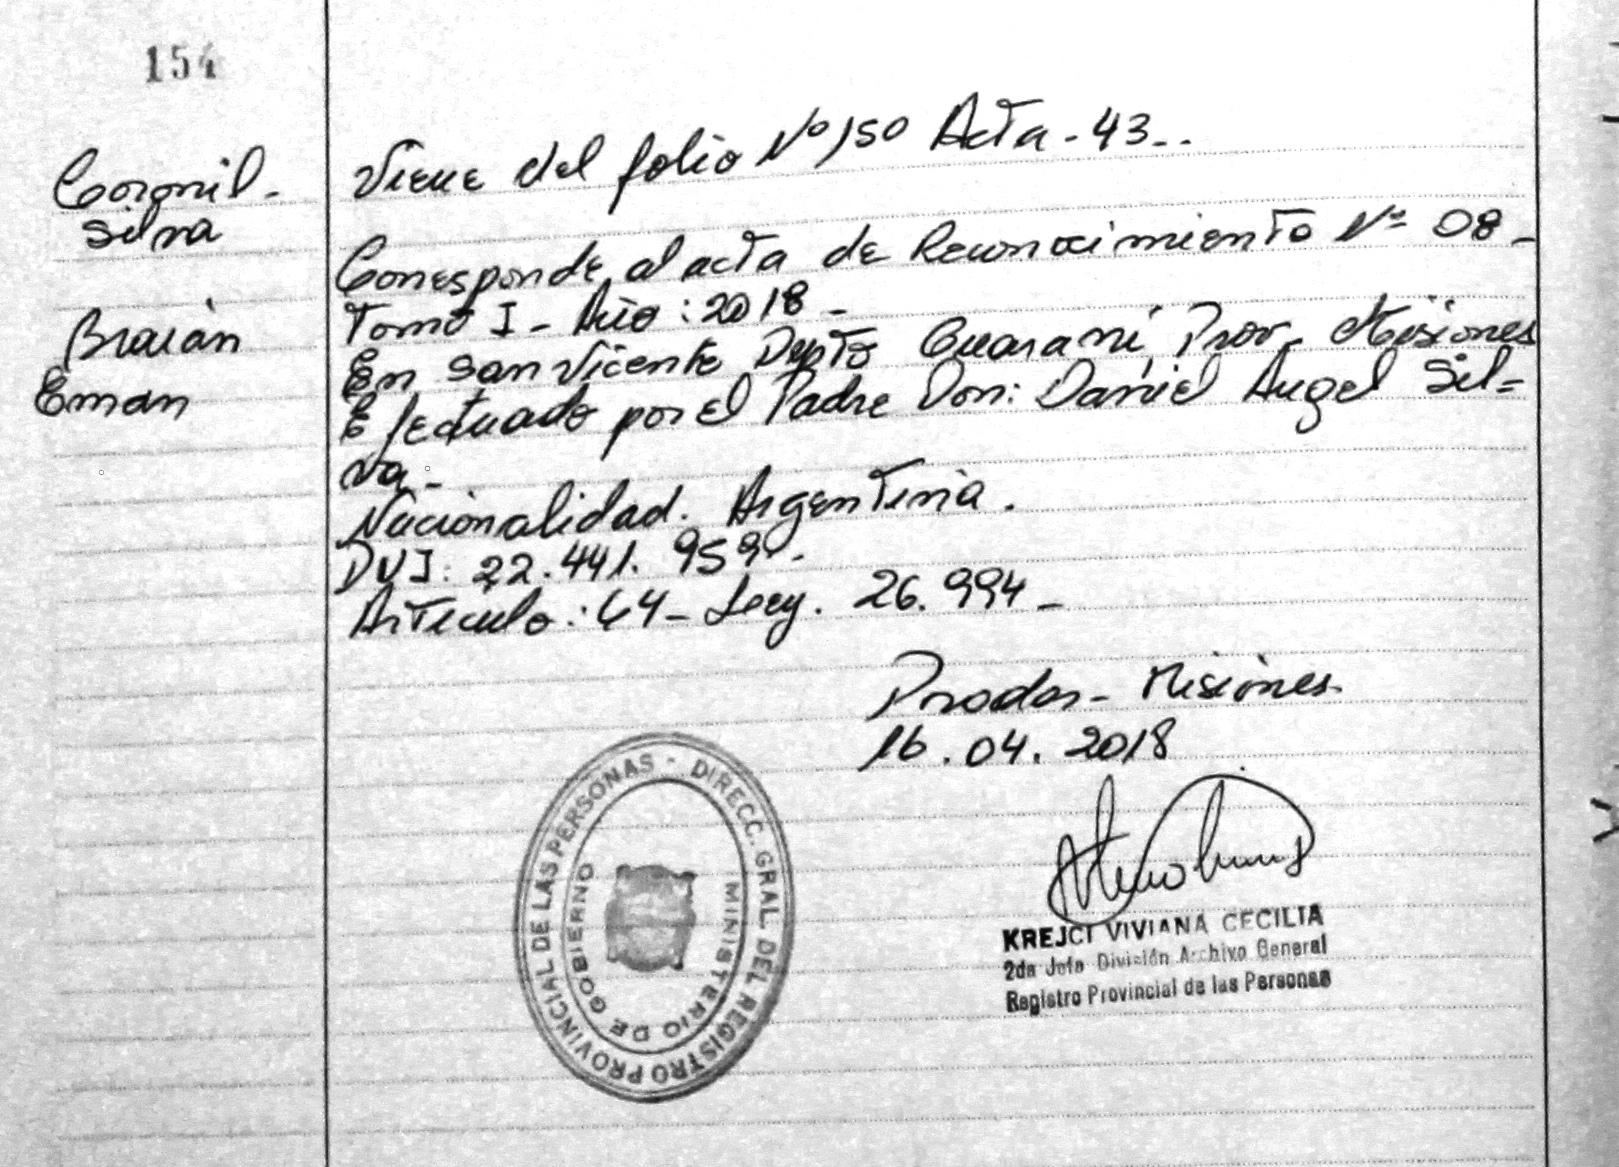 154
Coronil-
Silva
Braian
Eman
Viene del folio Nº 150 Acta - 43..
Corresponde al acta de Reconocimiento Nº 08-
Tomo I - Año: 2018 -
En San Vicente Depto Guaraní, Prov. Misiones
Efectuado por el Padre Don: Daniel Angel Sil=
va -
Nacionalidad. Argentina.
DNI: 22.441.959 -
Articulo: 64 - Ley. 26.994 -
Posadas - Misiones.
16.04.2018
KREJCI VIVIANA CECILIA
2da Jefa División Archivo General
Registro Provincial de las Personas
DIRECC. GRAL. DEL REGISTRO PROVINCIAL DE LAS PERSONAS -
MINISTERIO DE GOBIERNO